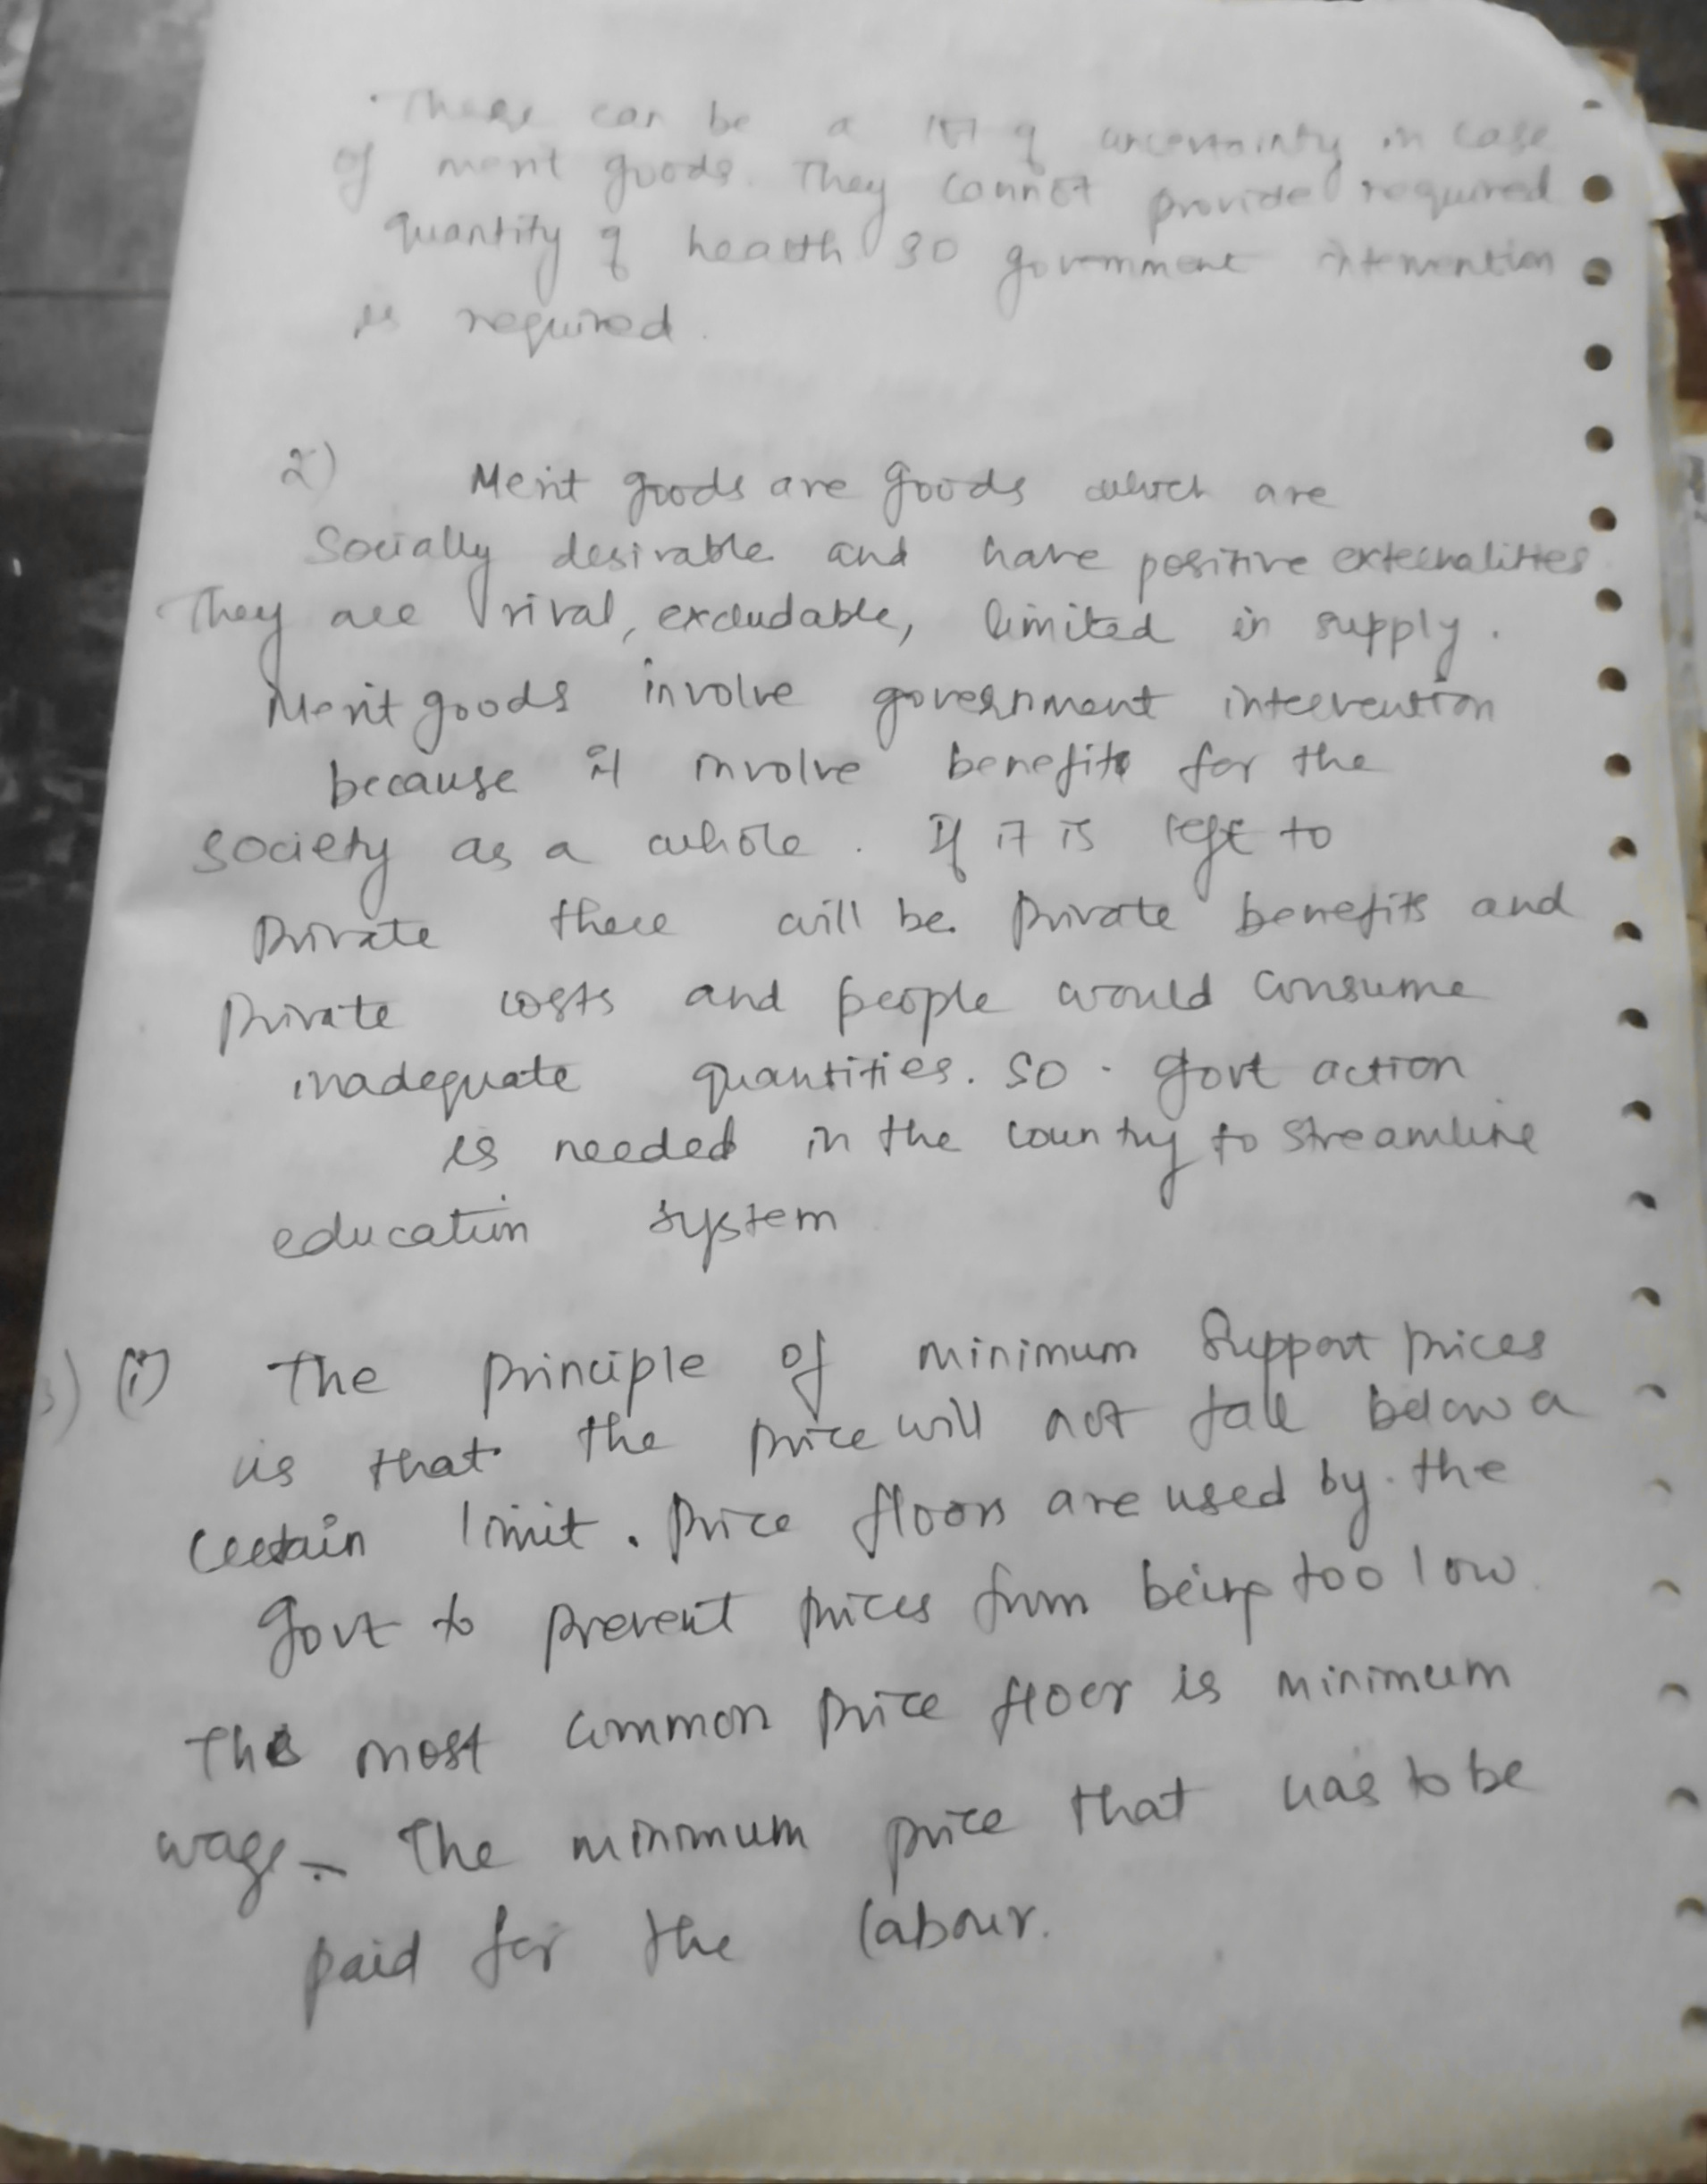 There can be a lot of uncertainty in case
of merit goods. They cannot provide required
quantity of health so government intervention
is required.
2) Merit goods are goods which are
Socially desirable and have positive externalities
They are rival, excludable, limited in supply.
Merit goods involve government intervention
because it involve benefits for the
society as a whole. If it is left to
Private there will be private benefits and
Private costs and people would consume
inadequate quantities. So govt action
is needed in the country to streamline
education system
3) (i) The principle of minimum Support prices
is that the price will not fall below a
certain limit. Price floors are used by the
govt to prevent prices from being too low.
The most common price floor is minimum
wage - The minimum price that has to be
paid for the labour.